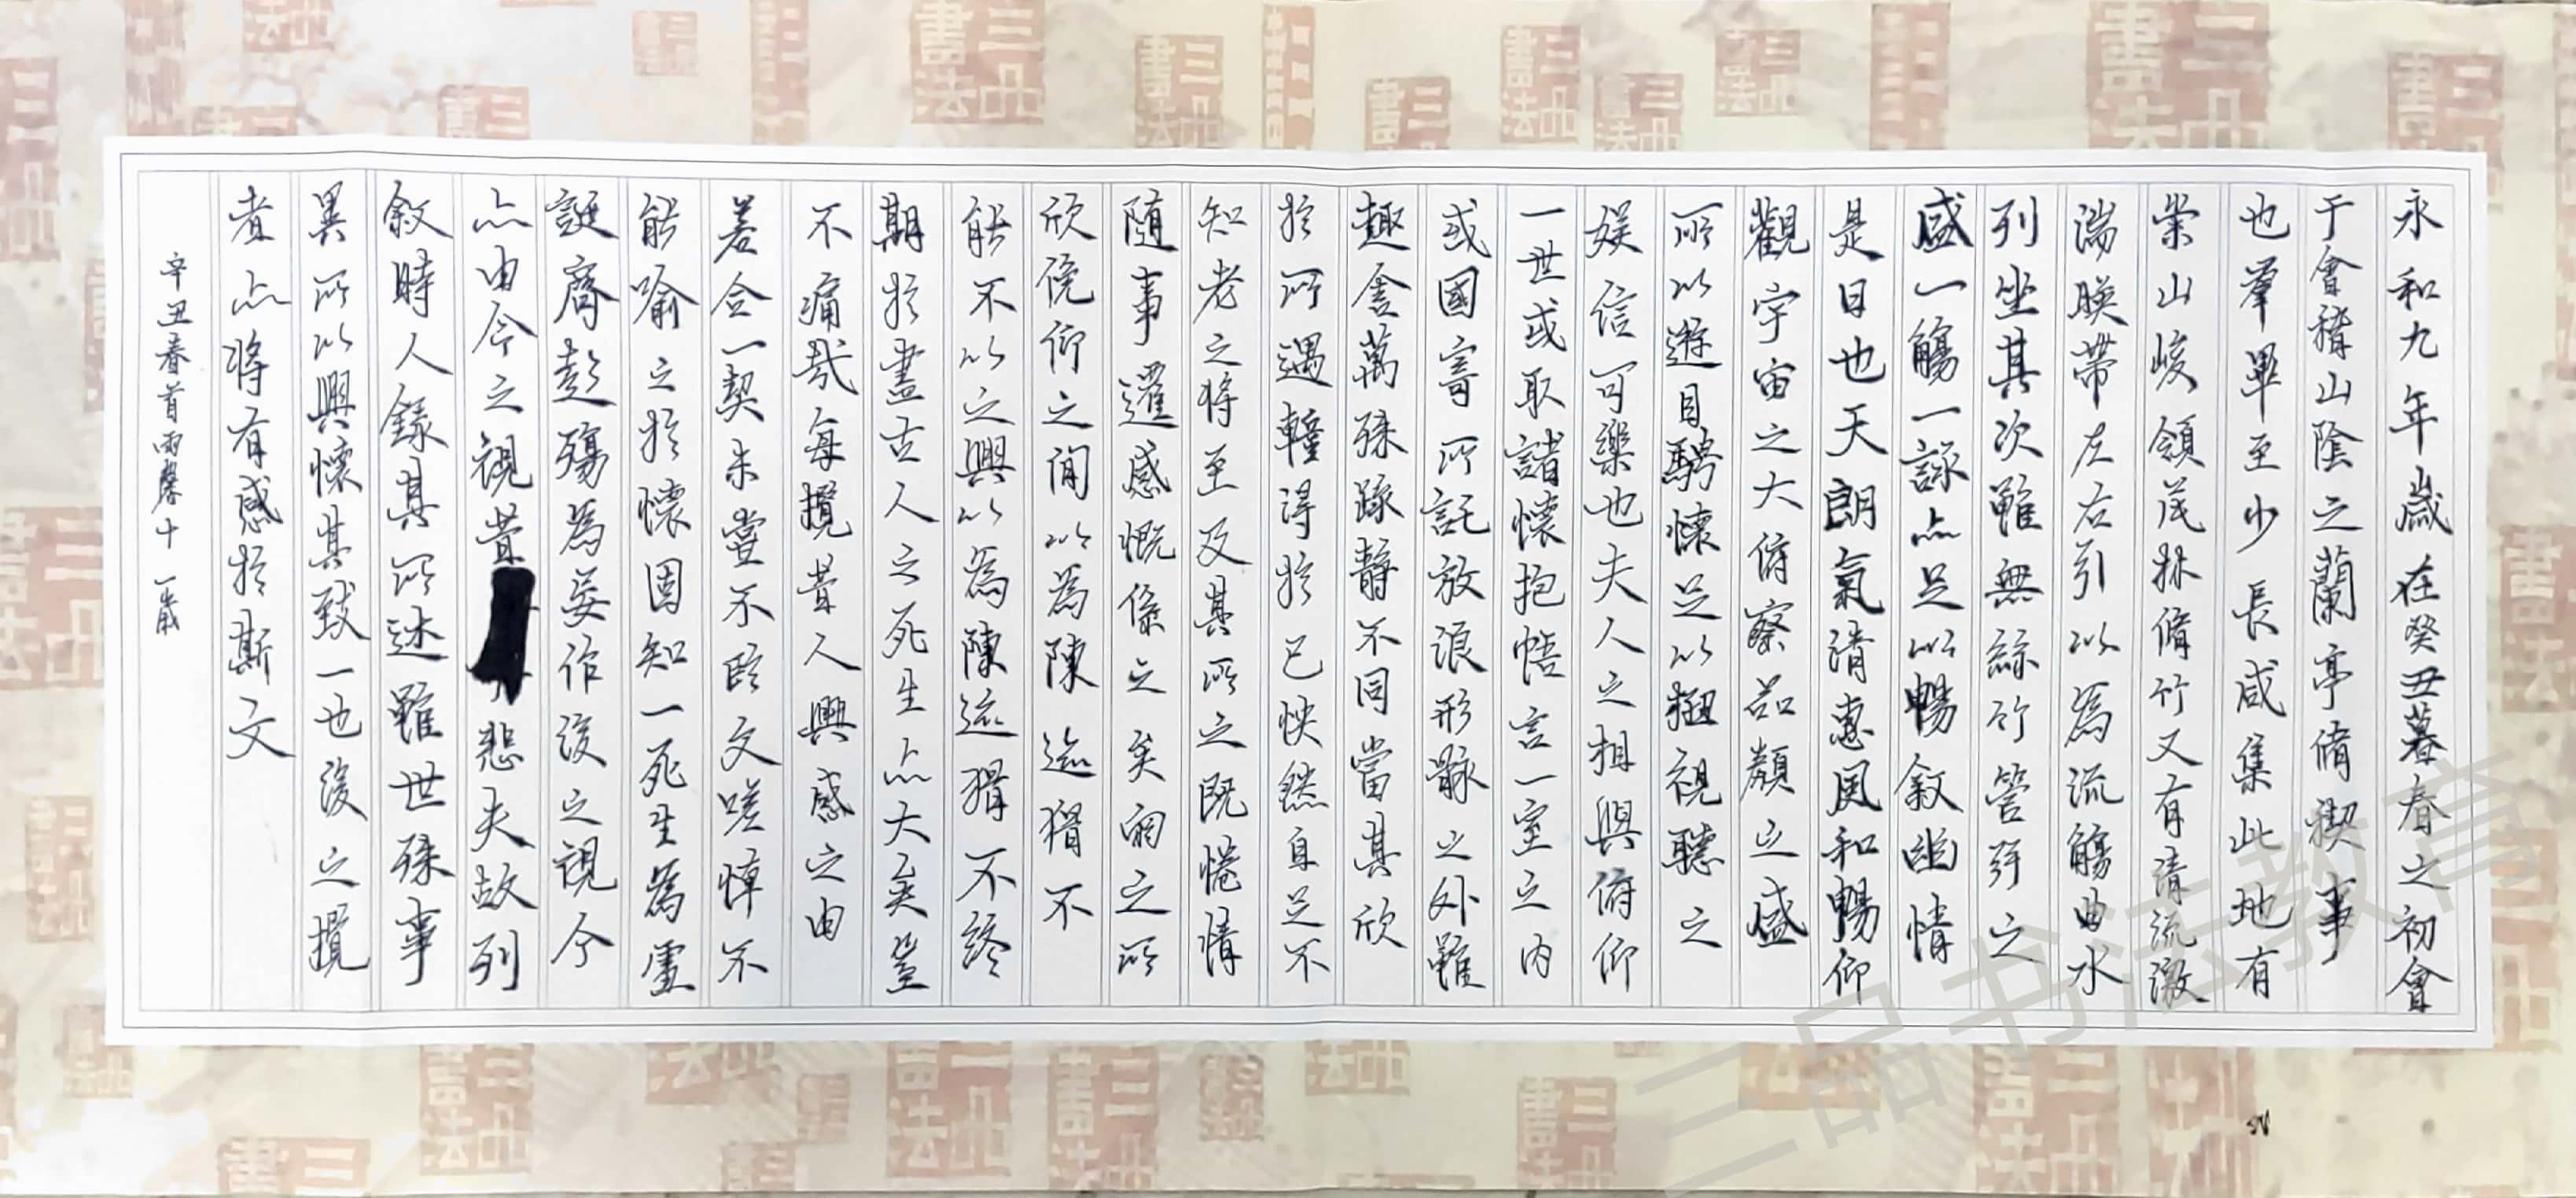 永和九年歲在癸丑暮春之初會
于會稽山陰之蘭亭脩禊事
也羣畢至少長咸集此地有
崇山峻領茂林脩竹又有清流激
湍暎帶左右引以為流觴曲水
列坐其次雖無絲竹管弦之
盛一觴一詠亦足以暢敘幽情
是日也天朗氣清惠風和暢仰
觀宇宙之大俯察品類之盛
所以遊目騁懷足以極視聽之
娛信可樂也夫人之相與俯仰
一世或取諸懷抱悟言一室之內
或因寄所託放浪形骸之外雖
趣舍萬殊躁靜不同當其欣
於所遇輕得於己怏然自足不
知老之將至及其所之既惓情
隨事遷感慨係之矣向之所
欣俛仰之閒以為陳迹猶不
能不以之興以為陳迹猶不終
期於盡古人云死生亦大矣豈
不痛哉每攬昔人興感之由
若合一契未嘗不臨文嗟悼不
能喻之於懷固知一死生為虛
誕齊彭殤為妄作後之視今
亦由今之視昔悲夫故列
敘時人錄其所述雖世殊事
異所以興懷其致一也後之攬
者亦將有感於斯文
辛丑春首雨馨十一歲
三品书法教育